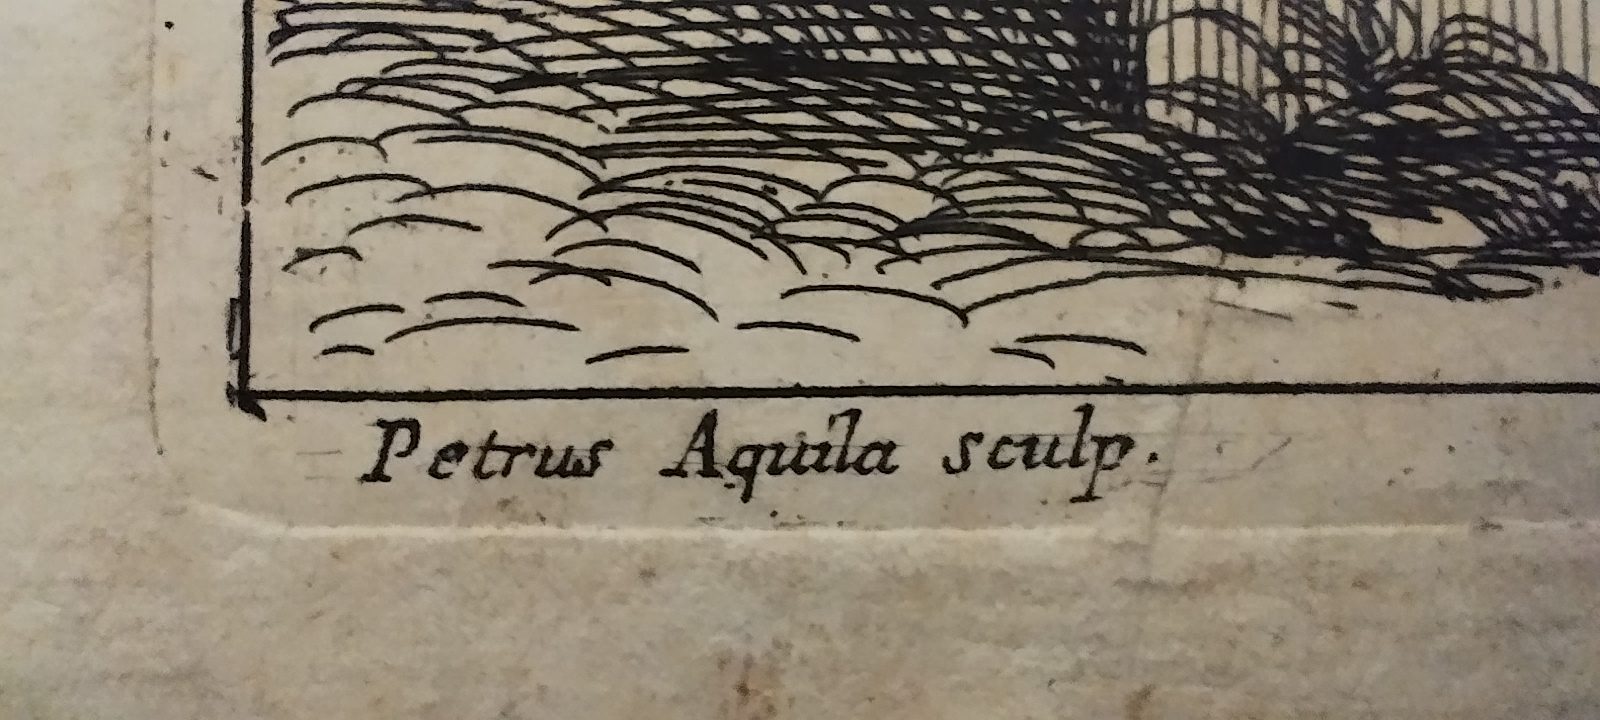 Petrus Aquila sculp.